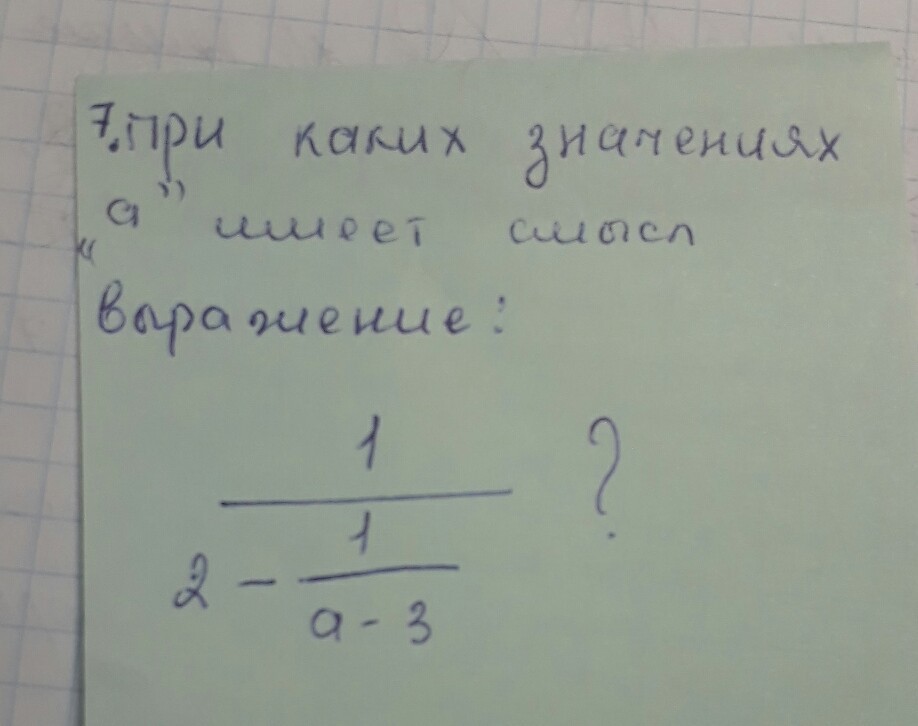 7. при каких значениях
„а” имеет смысл
выражение:
1
2 - 1 ?
а - 3